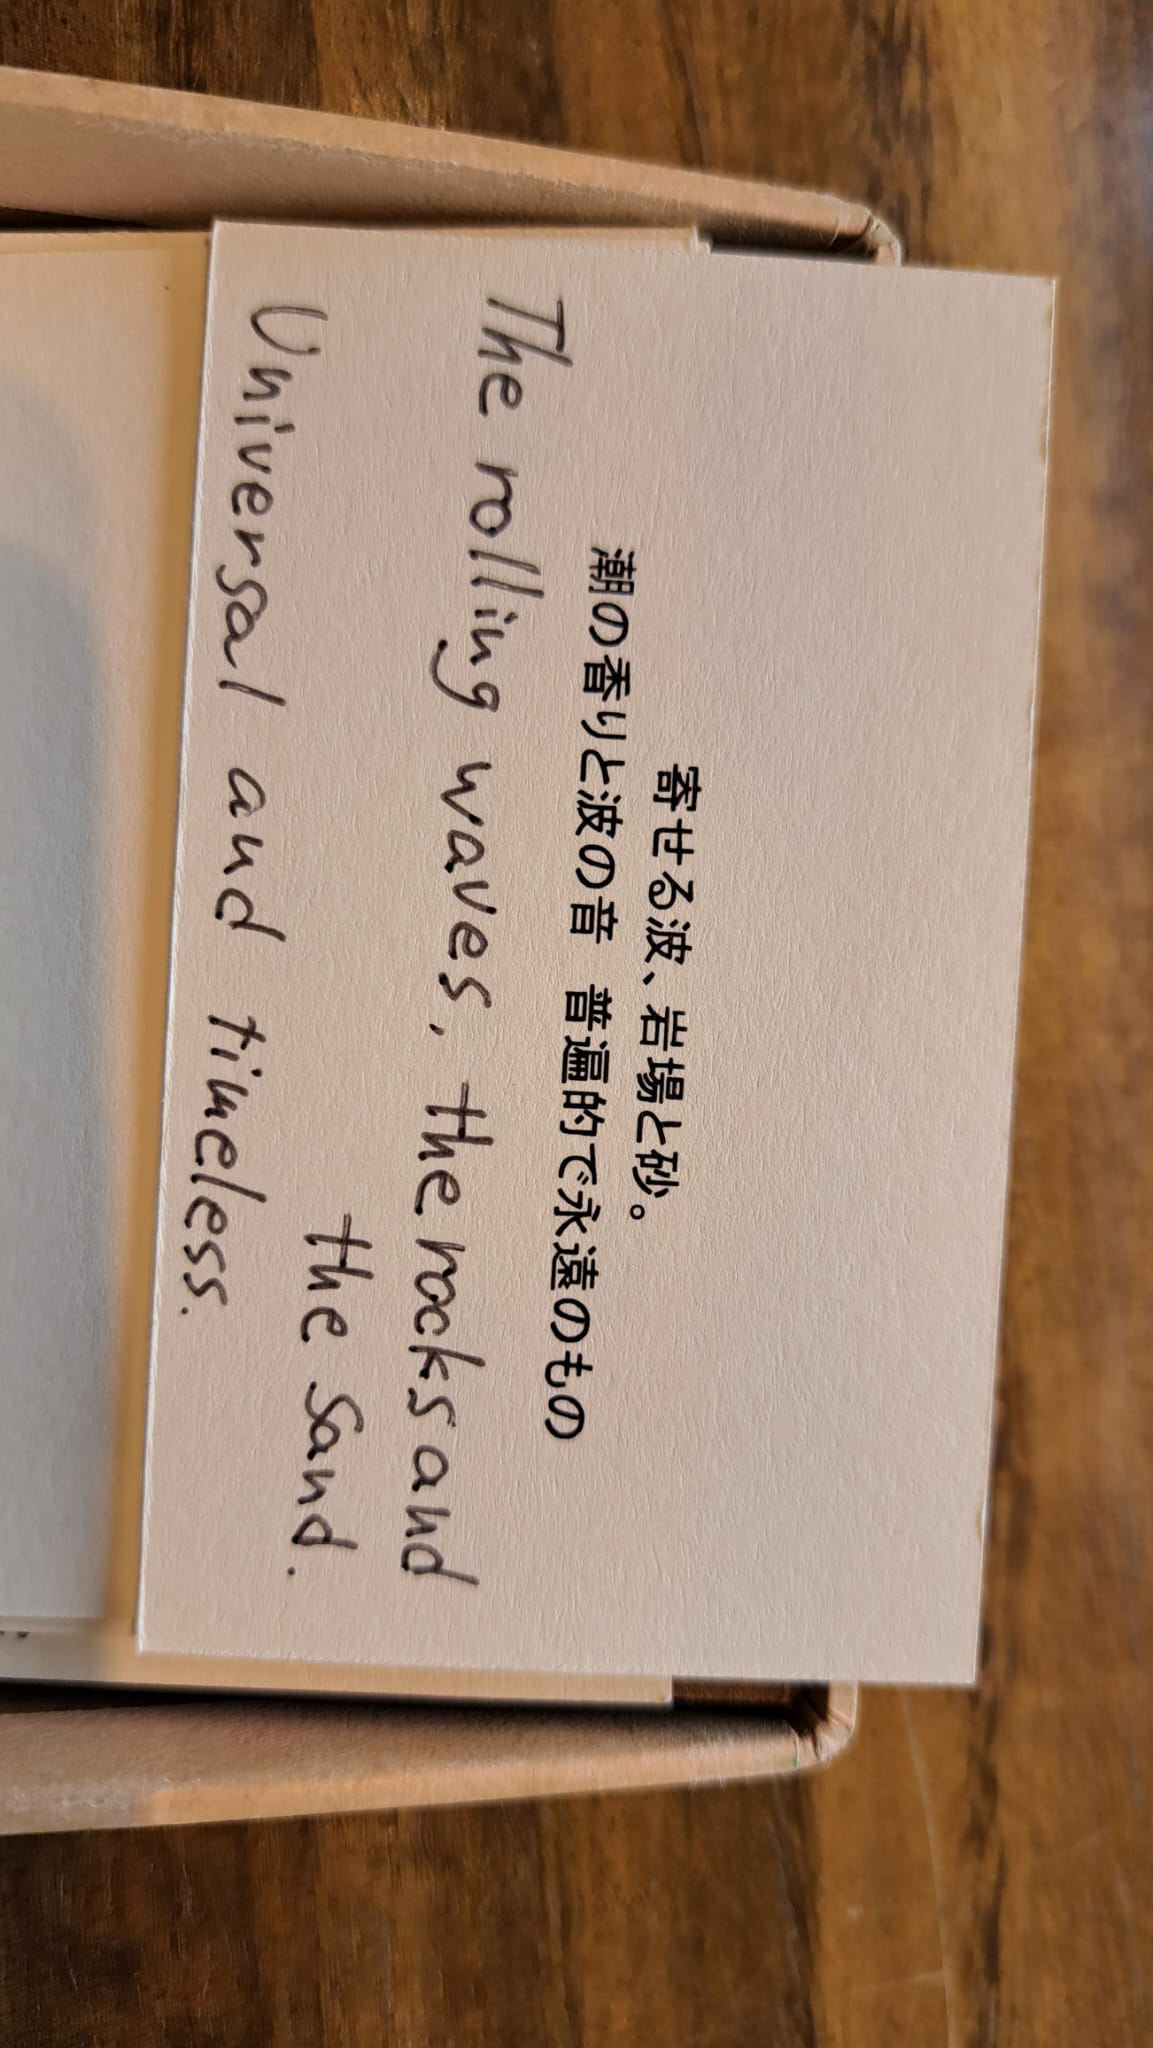 寄せる波、岩場と砂。
潮の香りと波の音　普遍的で永遠のもの
The rolling waves, the rocks and
the sand.
Universal and timeless.